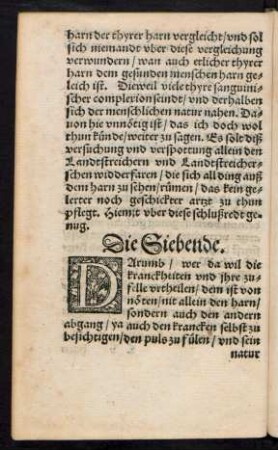 harn der thyrer harn vergleicht/vnd sol
sich niemandt vber diese vergleichung
verwundern/wan auch etlicher thyrer
harn dem gesunden menschen harn ge-
leich ist. Dieweil viele thyre sanguini-
scher complexion seindt/vnd derhalben
sich der menschlichen natur nahen. Da-
uon hie vnnötig ist/das ich doch wol
thun künde/weiter zu sagen. Es solt diß
versuchung vnd verspottung allein den
Landtstreichern vnd Landtstreicher-
schen widderfaren/die sich all ding auß
dem harn zu sehen/rümen/das kein ge-
lerter noch geschickter artzt zu thun
pflegt. Hiemit vber diese schlußredt ge-
nug.
Die Siebende.
DArumb/wer da wil die
kranckheiten vnd ihre zu-
felle vrtheilen/dem ist von
nöten/nit allein den harn/
sondern auch den andern
abgang/ya auch den krancken selbst zu
besichtigen/den puls zu fülen/vnd sein
natur